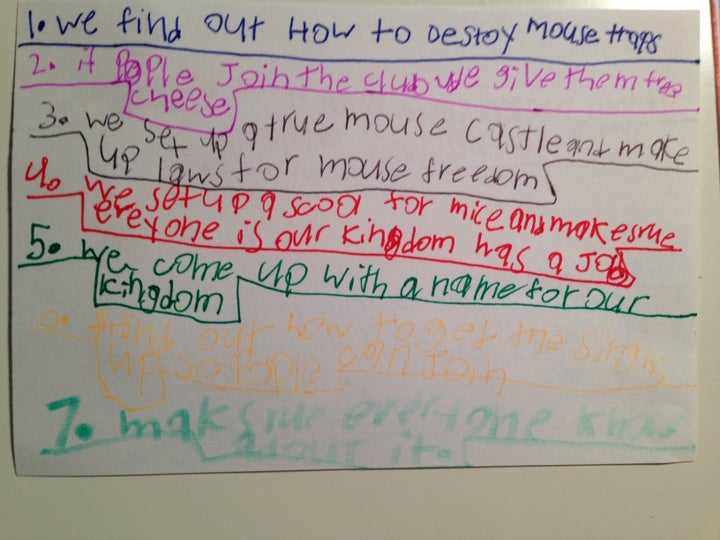 1. we find out How to Destoy mouse traps
2. if Pople Join the club we give them free
cheese
3. we set up a true mouse castle and make
up laws for mouse freedom
4. we set up a scool for mice and make srue
ereyone is our kingdom has a Job
5. we come up with a name for our
kingdom
6. find out how to get the singhs
up so Pople can Join
7. mak srue everyone know
about it.